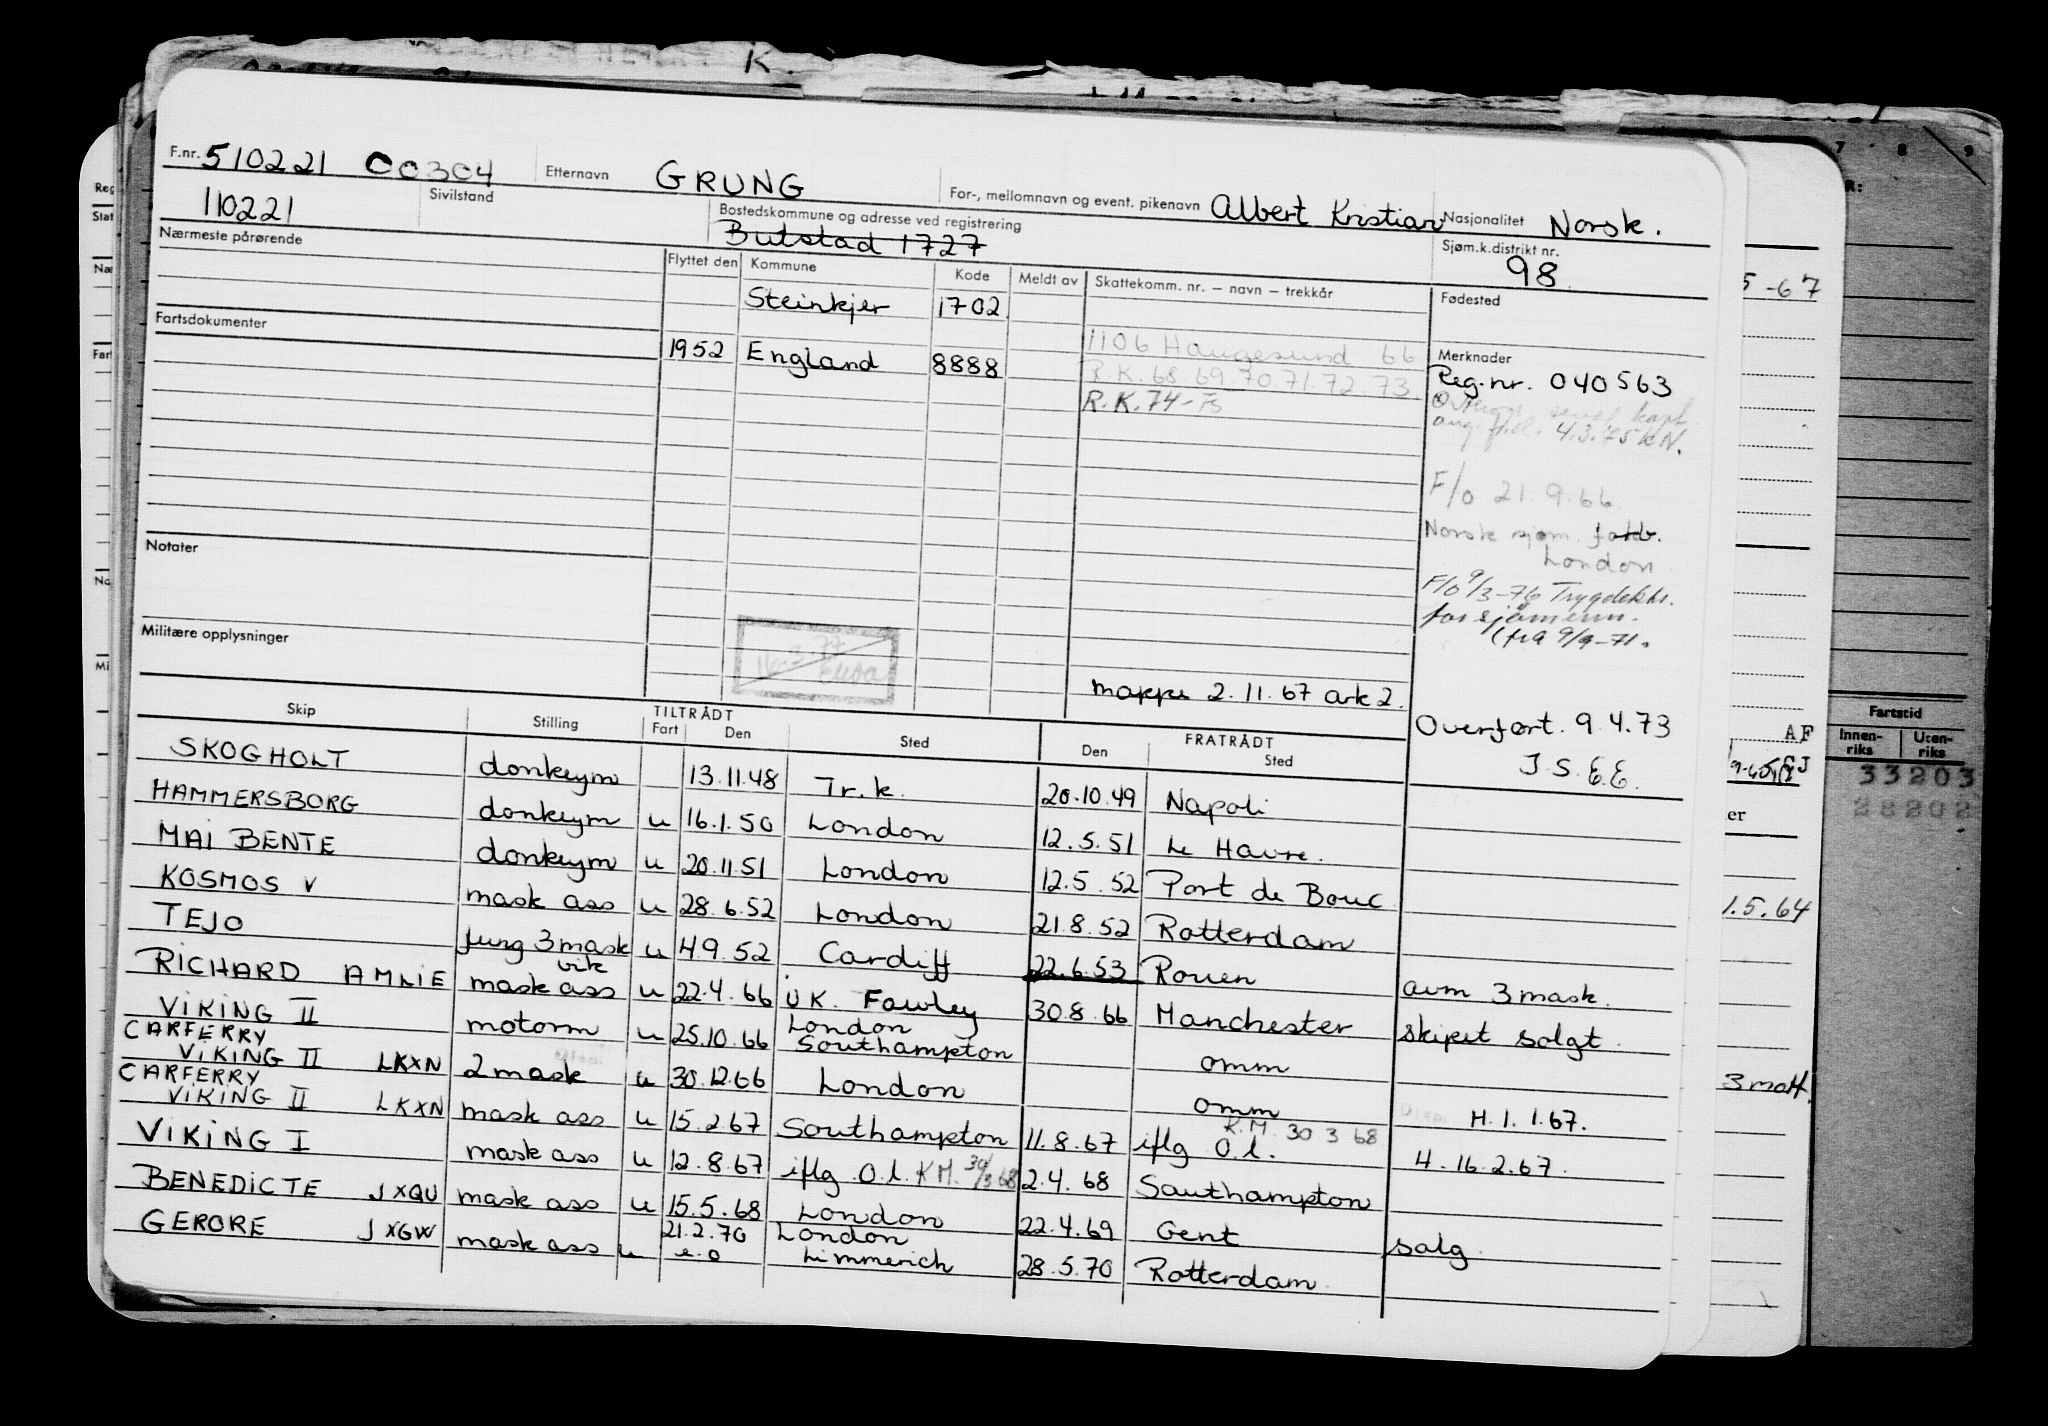 K.
F.nr. 510221 00304 Etternavn GRUNG For-, mellomnavn og event. pikenavn Albert Kristian Nasjonalitet Norsk.
110221 Sivilstand Bostedskommune og adresse ved registrering Butstad 1727 Sjøm.k.distrikt nr. 98
Nærmeste pårørende Flyttet den Kommune Kode Meldt av Skattekomm. nr. – navn – trekkår Fødested
Steinkjer 1702
Fartsdokumenter 1952 England 8888 1106 Haugesund 66 Merknader
R.K. 68 69. 70. 71. 72. 73 Reg.nr. 040563
R.K. 74-
aug. 4.3.75 KN.
F/o 21.9.66
Norsk sjøm.
London
Notater
F/o 9/3-76 Trygdekt.
for sjømenn.
(fra 9/9-71.
Militære opplysninger
16.3.77
mappe 2.11.67 ark 2.
Overført. 9.4.73
J.S.E.E.
Skip Stilling TILTRÅDT Fart Den Sted FRATRÅDT Den Sted
SKOGHOLT donkeym 13.11.48 Tr.k. 20.10.49 Napoli
HAMMERSBORG donkeym u 16.1.50 London 12.5.51 Le Havre.
MAI BENTE donkeym u 20.11.51 London 12.5.52 Port de Bouc
KOSMOS V mask ass u 28.6.52 London 21.8.52 Rotterdam
TEJO jung 3 mask u 4.9.52 Cardiff 22.6.53 Rouen avm 3 mask.
vik
RICHARD AMLIE mask ass u 22.4.66 UK. Fawley 30.8.66 Manchester skipet solgt.
VIKING II motorm u 25.10.66 London Southampton omm
CARFERRY
VIKING II LKXN 2 mask u 30.12.66 London omm H. 1.1.67.
CARFERRY
VIKING II LKXN mask ass u 15.2.67 Southampton 11.8.67 iflg O.l. K.M. 30 3 68 H. 16.2.67.
VIKING I mask ass u 12.8.67 iflg O.l. KM. 30/3 68 2.4.68 Southampton
BENEDICTE JXQU mask ass u 15.5.68 London 22.4.69 Gent salg
GERORE JXGW mask ass u 21.2.70 e.o London Limmerich 28.5.70 Rotterdam.
7 8 9
R:
5-67
AF
Fartstid
Innen-riks Uten-riks
33203
28202
er
1.5.64
3 matr.
Reg
Stat
Næ
Far
No
Mi